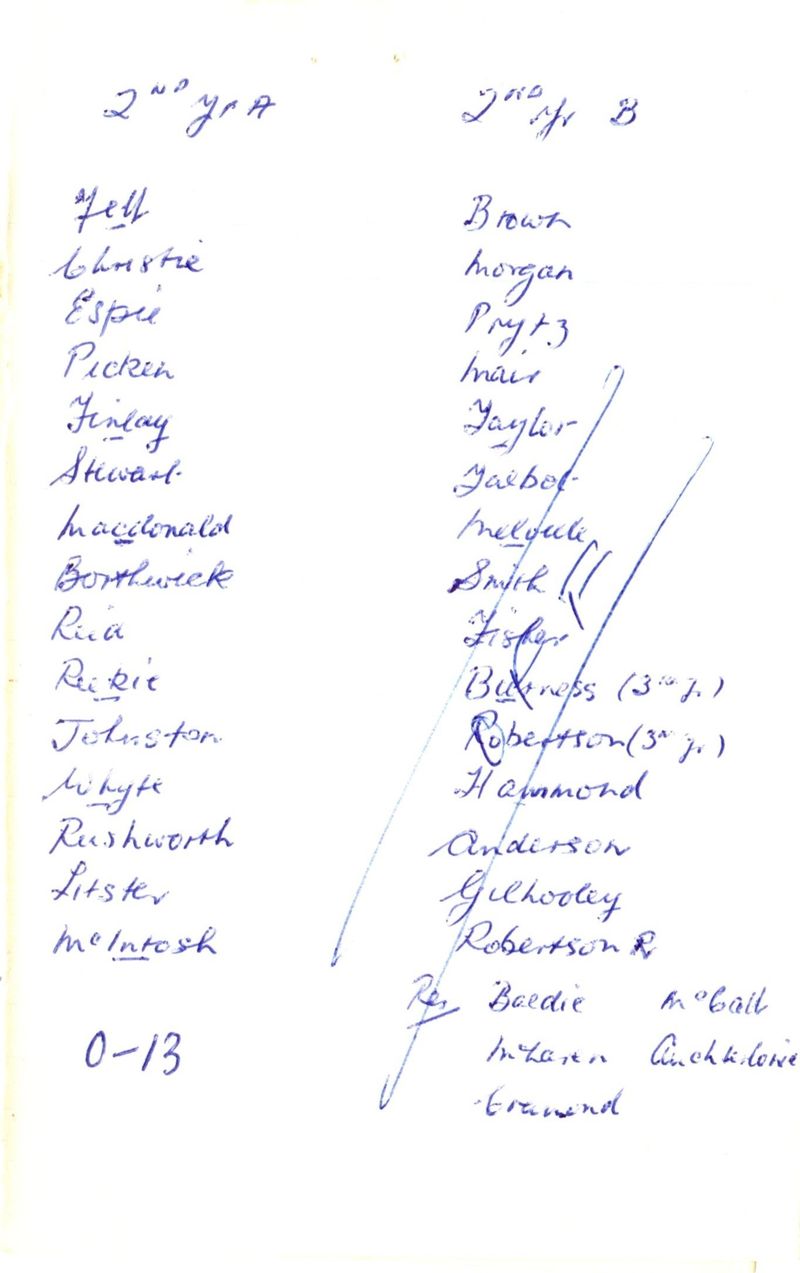 2ND Yr A
Fell
Christie
Espie
Picken
Finlay
Stewart
Macdonald
Borthwick
Reid
Johnston
Whyte
Rushworth
Litster
McIntosh
0-13
2ND Yr B
Brown
Morgan
Prytz
Mair
Taylor
Talbot
Smith
Fisher
Burness (3rd yr)
Robertson (3rd yr)
Hammond
Anderson
Gilhooley
Robertson R
Res Baldie McCall
McLaren
Cramond